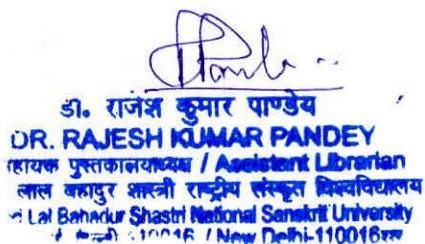 डा. राजेश कुमार पाण्डेय
DR. RAJESH KUMAR PANDEY
पुस्तकालयाध्यक्ष / Assistant Librarian
लाल बहादुर शास्त्री राष्ट्रीय संस्कृत विश्वविद्यालय
Lal Bahadur Shastri National Sanskrit University
/ New Delhi-110016